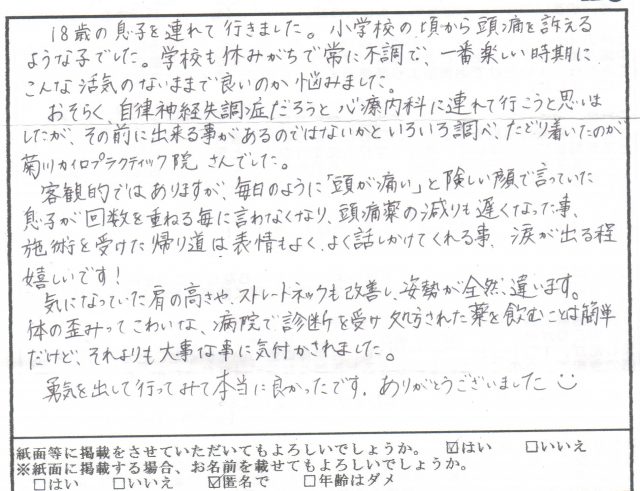 18歳の息子を連れて行きました。小学校の頃から頭痛を訴える
ような子でした。学校も休みがちで常に不調で、一番楽しい時期に
こんな活気のないままで良いのか悩みました。
おそらく、自律神経失調症だろうと心療内科に連れて行こうと思いま
したが、その前に出来る事があるのではないかといろいろ調べ、たどり着いたのが
菊川カイロプラクティック院さんでした。
客観的ではありますが、毎日のように「頭が痛い」と険しい顔で言っていた
息子が回数を重ねる毎に言わなくなり、頭痛薬の減りも遅くなった事、
施術を受けた帰り道は表情もよく、よく話しかけてくれる事、涙が出る程
嬉しいです!
気になっていた肩の高さや、ストレートネックも改善し、姿勢が全然違います。
体の歪みってこわいな、病院で診断を受け処方された薬を飲むことは簡単
だけど、それよりも大事な事に気付かされました。
勇気を出して行ってみて本当に良かったです。ありがとうございました
紙面等に掲載をさせていただいてもよろしいでしょうか。 ☑はい □いいえ
※紙面に掲載する場合、お名前を載せてもよろしいでしょうか。
□はい □いいえ ☑匿名で □年齢はダメ